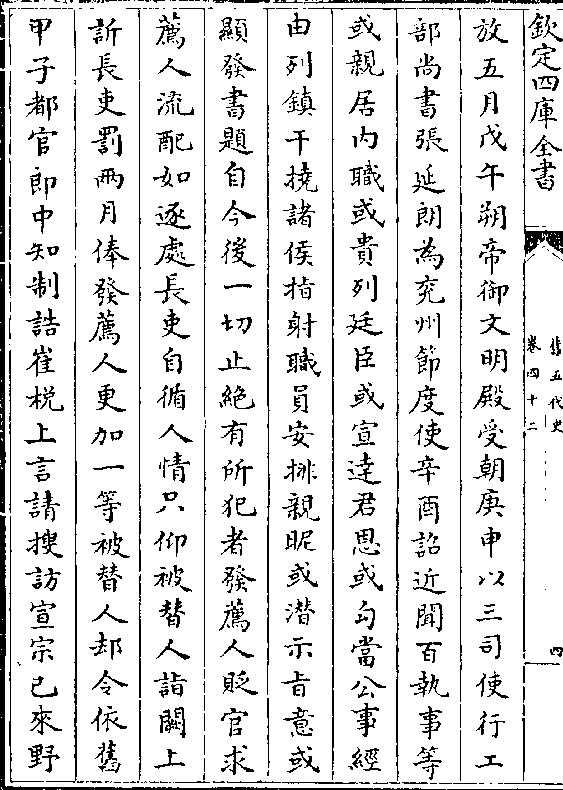 欽定四庫全書
舊五代史
卷四十二
四
放五月戊午朔帝御文明殿受朝庚申以三司使行工
部尚書張延朗為兖州節度使辛酉詔近聞百執事等
或親居内職或貴列廷臣或宣達君恩或勾當公事經
由列鎮干撓諸侯指射職員安排親昵或潜示㫖意或
顯發書題自今後一切止絶有所犯者發薦人貶官求
薦人流配如逐處長吏自循人情只仰被替人詣闕上
訴長吏罰兩月俸發薦人更加一等被替人却令依舊
甲子都官郎中知制誥崔梲上言請搜訪宣宗已來野